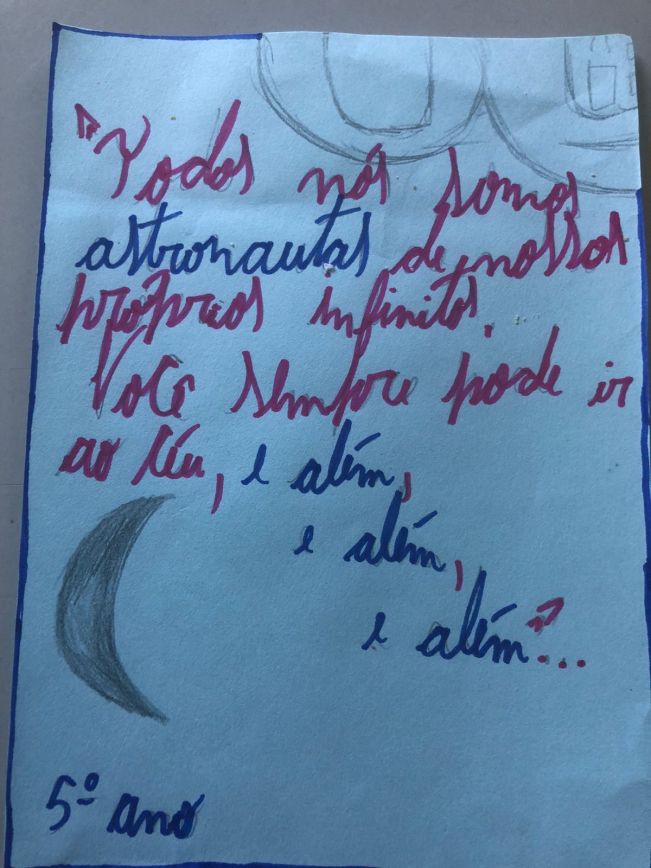 "Todos nós somos
astronautas de nossos
próprios infinitos.
Você sempre pode ir
ao céu, e além,
e além,
e além"...
5º ano